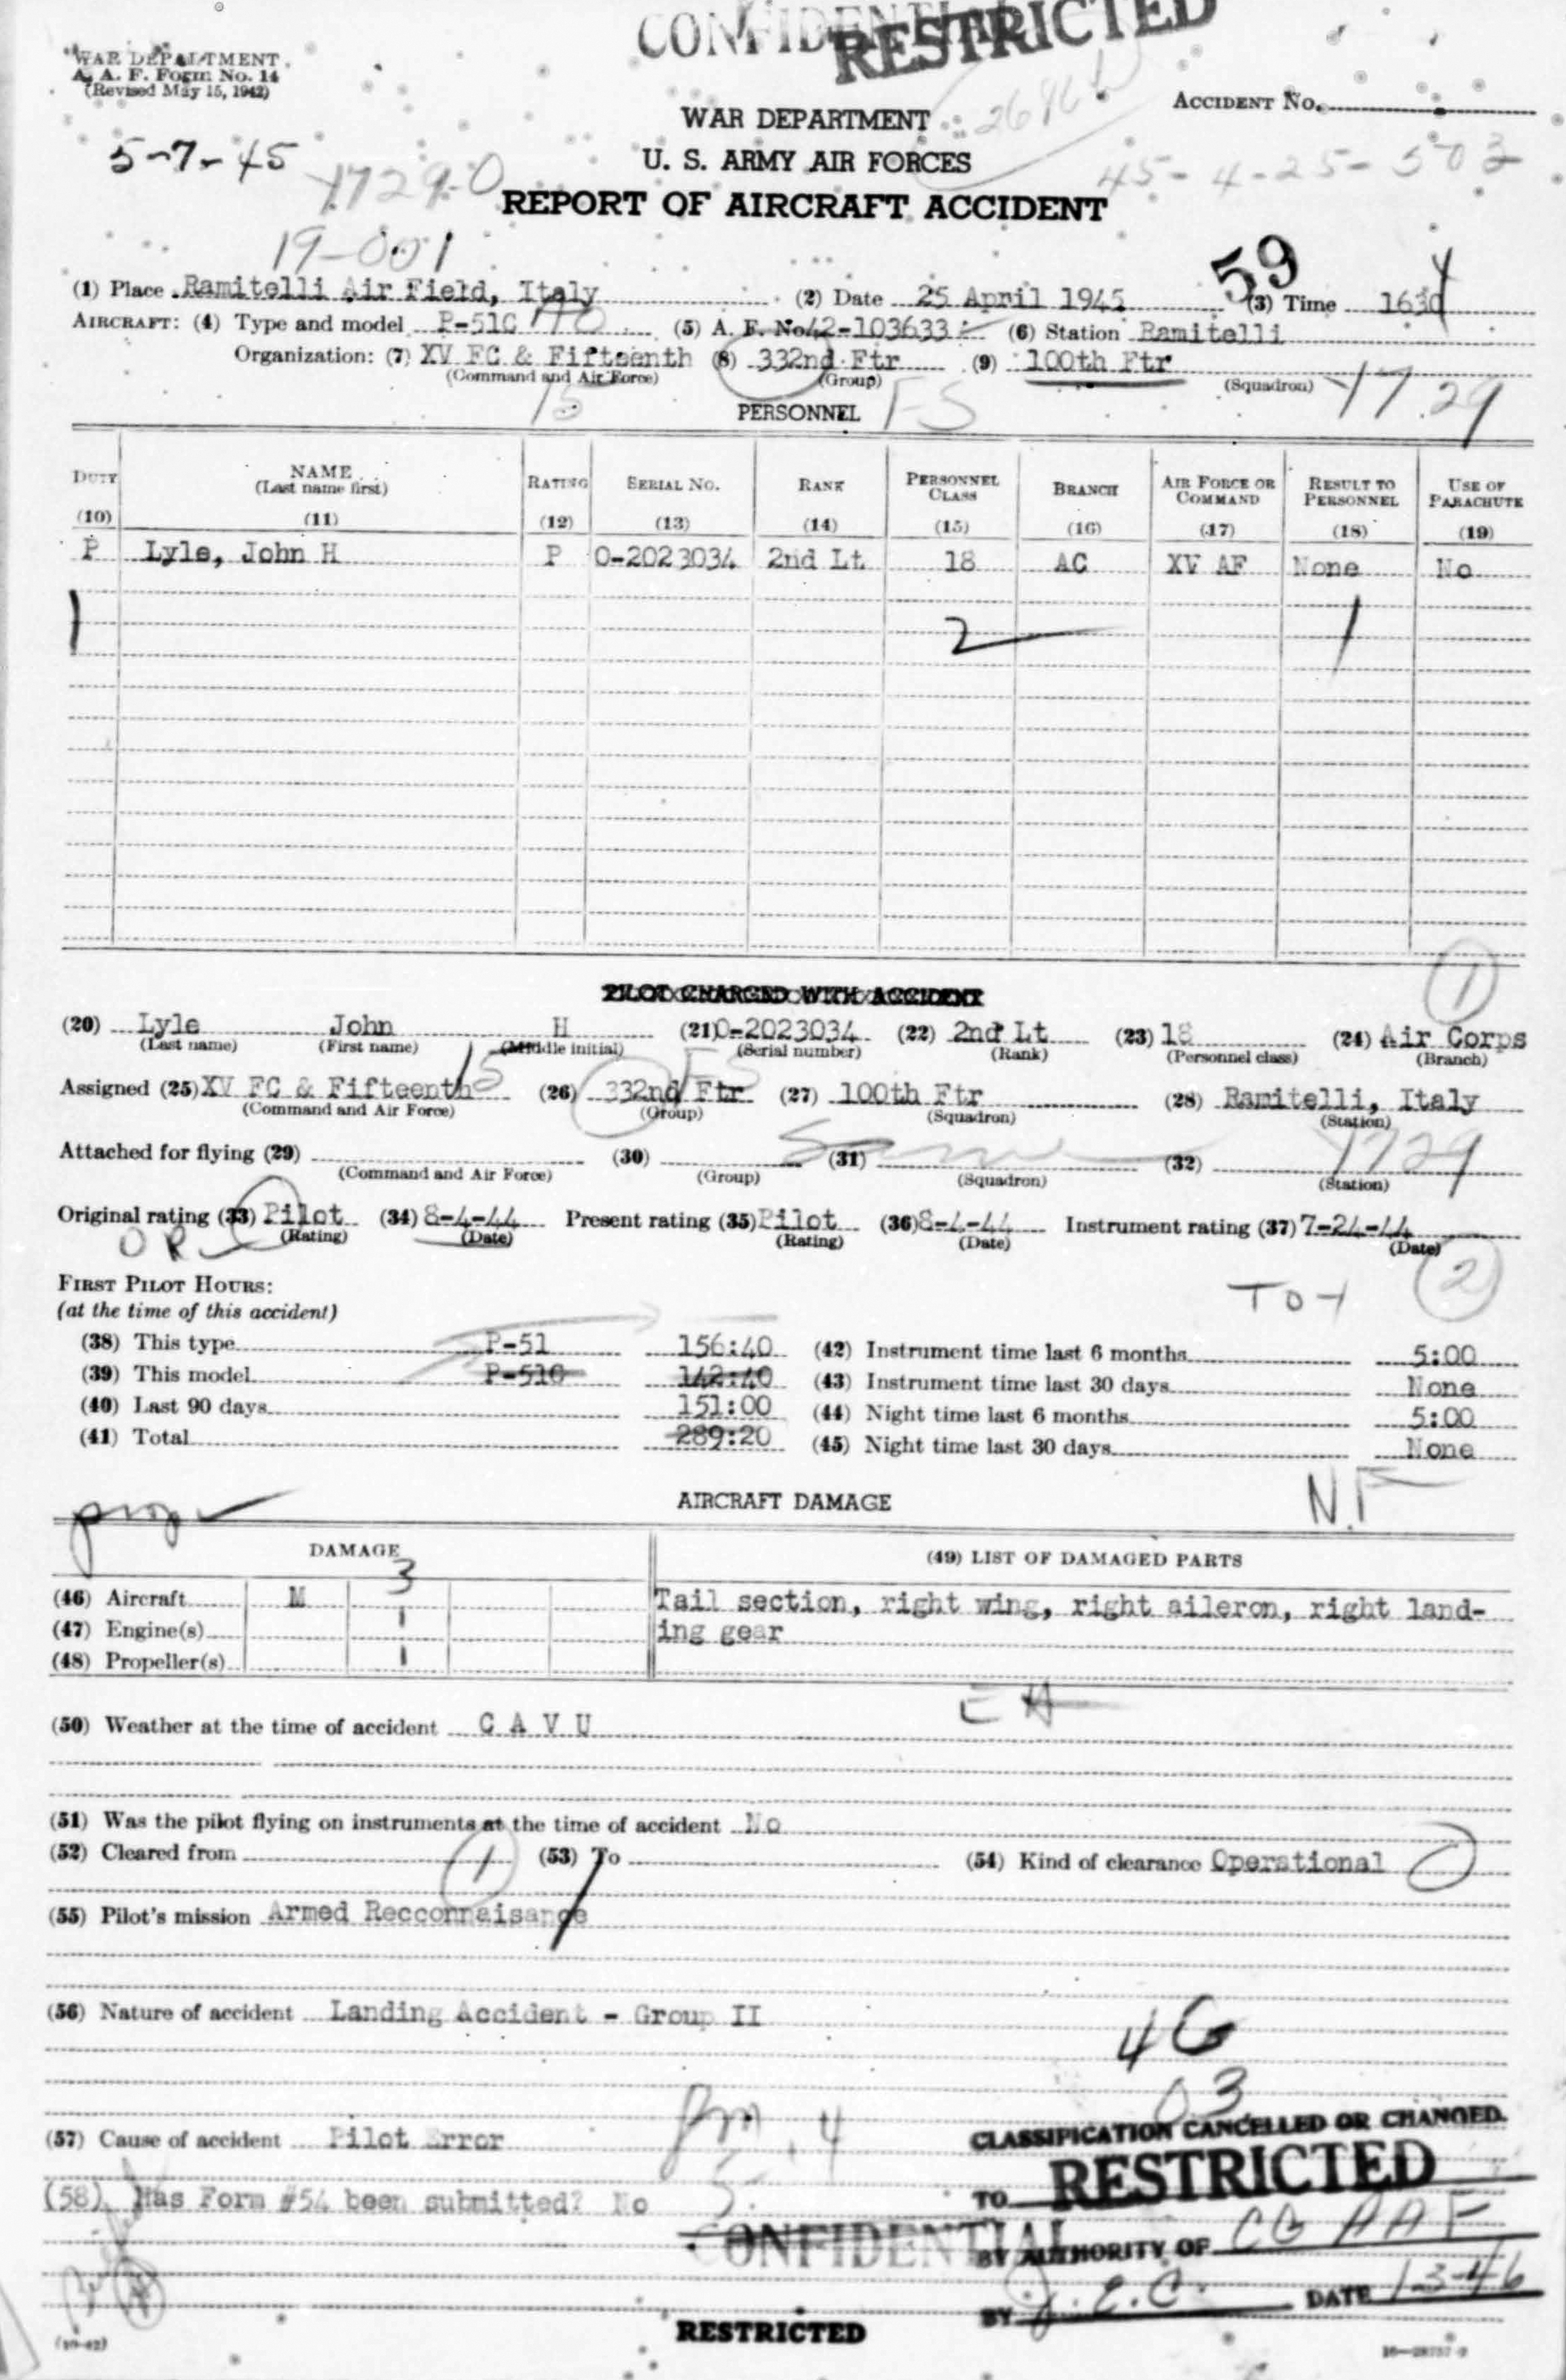 CONFIDENTIAL
RESTRICTED
WAR DEPARTMENT
A. A. F. Form No. 14
(Revised May 15, 1942)
ACCIDENT No.
5-7-45
WAR DEPARTMENT
U. S. ARMY AIR FORCES
45-4-25-503
1729-0
REPORT OF AIRCRAFT ACCIDENT
19-001
59
(1) Place Ramitelli Air Field, Italy (2) Date 25 April 1945 (3) Time 1630
AIRCRAFT: (4) Type and model P-51C (5) A. F. No. 42-103633 (6) Station Ramitelli
Organization: (7) XV FC & Fifteenth (8) 332nd Ftr (9) 100th Ftr
(Command and Air Force) (Group) (Squadron)
15 FS 1729
PERSONNEL
DUTY NAME (Last name first) RATING SERIAL No. RANK PERSONNEL CLASS BRANCH AIR FORCE OR COMMAND RESULT TO PERSONNEL USE OF PARACHUTE
(10) (11) (12) (13) (14) (15) (16) (17) (18) (19)
P Lyle, John H P O-2023034 2nd Lt 18 AC XV AF None No
1 2 1
1
PILOT CHARGED WITH ACCIDENT
(20) Lyle John H (21) O-2023034 (22) 2nd Lt (23) 18 (24) Air Corps
(Last name) (First name) (Middle initial) (Serial number) (Rank) (Personnel class) (Branch)
Assigned (25) XV FC & Fifteenth 15 (26) 332nd Ftr (27) 100th Ftr (28) Ramitelli, Italy
(Command and Air Force) (Group) (Squadron) (Station)
Attached for flying (29) (30) (31) (32) 1729
(Command and Air Force) (Group) (Squadron) (Station)
Original rating (33) Pilot (34) 8-4-44 Present rating (35) Pilot (36) 8-4-44 Instrument rating (37) 7-24-44
(Rating) (Date) (Rating) (Date) (Date)
2
FIRST PILOT HOURS:
(at the time of this accident)
(38) This type P-51 156:40 (42) Instrument time last 6 months 5:00
(39) This model P-51C 142:40 (43) Instrument time last 30 days None
(40) Last 90 days 151:00 (44) Night time last 6 months 5:00
(41) Total 289:20 (45) Night time last 30 days None
AIRCRAFT DAMAGE
N.F
DAMAGE (49) LIST OF DAMAGED PARTS
3
(46) Aircraft M Tail section, right wing, right aileron, right land-
(47) Engine(s) 1 ing gear
(48) Propeller(s) 1
(50) Weather at the time of accident C A V U
(51) Was the pilot flying on instruments at the time of accident No
(52) Cleared from (53) To (54) Kind of clearance Operational
1
(55) Pilot's mission Armed Recconnaisance
(56) Nature of accident Landing Accident - Group II
4G
03
(57) Cause of accident Pilot Error
CLASSIFICATION CANCELLED OR CHANGED
TO RESTRICTED
(58) Has Form #54 been submitted? No
CONFIDENTIAL
BY AUTHORITY OF CG AAF
BY J.E.C. DATE 1-3-46
RESTRICTED
(10-42)